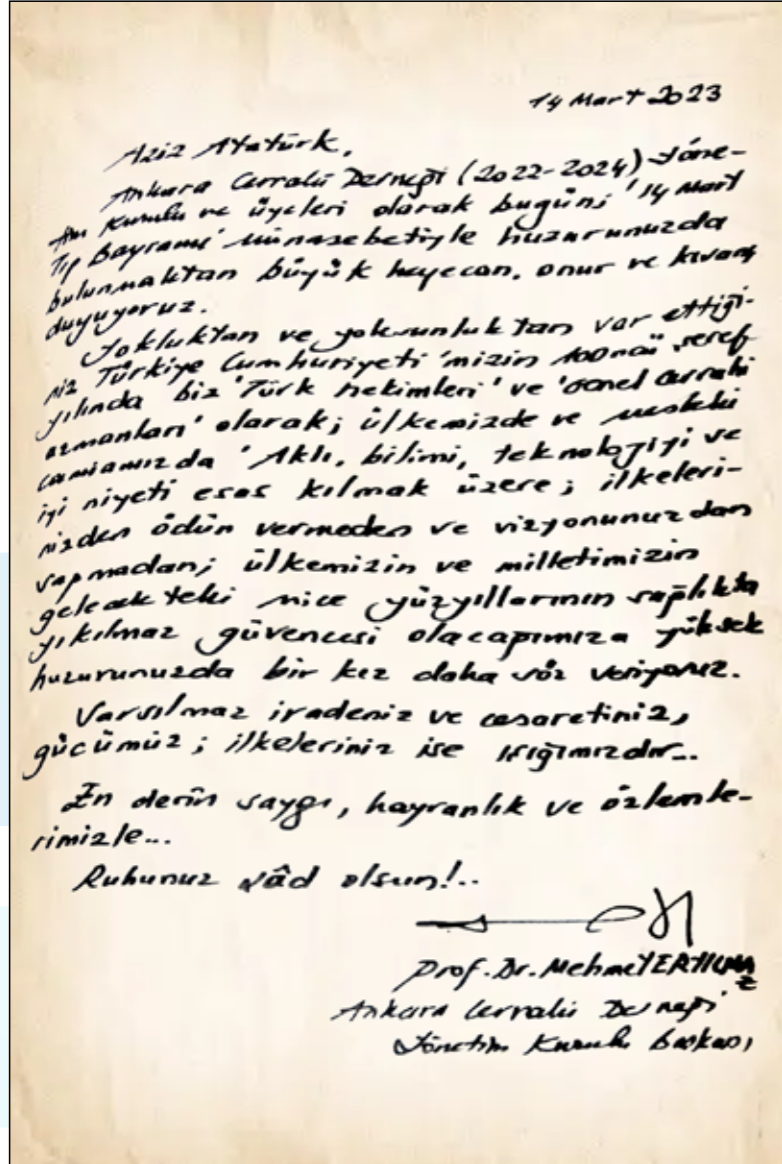 14 Mart 2023
Aziz Atatürk,
Ankara Cerrahi Derneği (2022-2024) Yöne-
tim Kurulu ve üyeleri olarak bugün; '14 Mart
Tıp Bayramı' münasebetiyle huzurunuzda
bulunmaktan büyük heyecan, onur ve kıvanç
duyuyoruz.
Yokluktan ve yoksunluktan var ettiği-
niz Türkiye Cumhuriyeti'mizin 100ncü şeref
yılında biz 'Türk hekimleri' ve 'Genel Cerrahi
uzmanları' olarak; ülkemizde ve mesleki
camiamızda 'Aklı, bilimi, teknolojiyi ve
iyi niyeti esas kılmak üzere; ilkeleri-
nizden ödün vermeden ve vizyonunuzdan
sapmadan; ülkemizin ve milletimizin
gelecekteki nice yüzyıllarının sağlıkta
yıkılmaz güvencesi olacağımıza yüksek
huzurunuzda bir kez daha söz veriyoruz.
Varsılmaz iradeniz ve cesaretiniz,
gücümüz; ilkeleriniz ise ışığımızdır...
En derin saygı, hayranlık ve özlemle-
rimizle...
Ruhunuz şâd olsun!..
Prof. Dr. Mehmet
Ankara Cerrahi Derneği
Yönetim Kurulu Başkanı